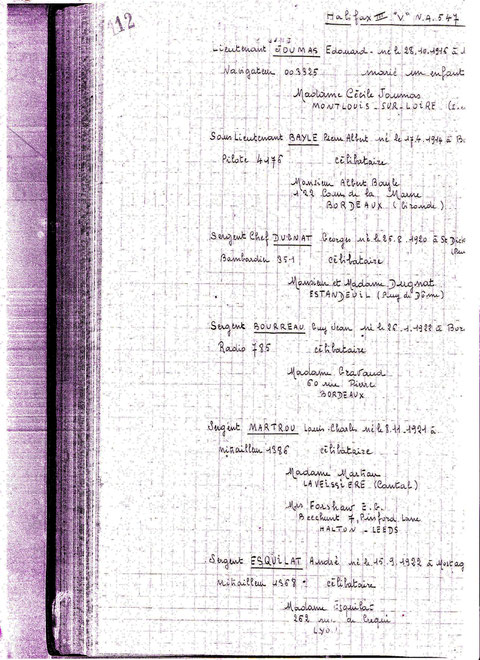 12
Halifax III "V" N.A. 547
Lieutenant JOUMAS Edouard - né le 28.10.1916 à
Navigateur 003325 marié un enfant
Madame Cécile Joumas
MONTLOUIS - SUR - LOIRE
Sous Lieutenant BAYLE Pierre Albert né le 17.4.1914 à
Pilote 4176 célibataire
Monsieur Albert Bayle
122 Cours de la Marne
BORDEAUX (Gironde)
Sergent Chef DUGNAT Georges né le 25.8.1920 à St Dié
Bombardier 351 célibataire
Monsieur et Madame Dugnat
ESTANDEUIL (Puy de Dôme)
Sergent BOURREAU Guy Jean né le 26.1.1922 à Bor
Radio 785 célibataire
Madame Gravaud
60 rue Pierre
BORDEAUX
Sergent MARTROU Louis-Charles né le 8.11.1921 à
mitrailleur 1396 célibataire
Madame
LAVEISSIERE (Cantal)
Mrs Forshaw E.G.
Beechunt 7, Pinsford Lane
HALTON - LEEDS
Sergent ESQUILAT André né le 15.9.1922 à Mostag
mitrailleur 1368 célibataire
Madame Esquilat
262 rue de
LYO